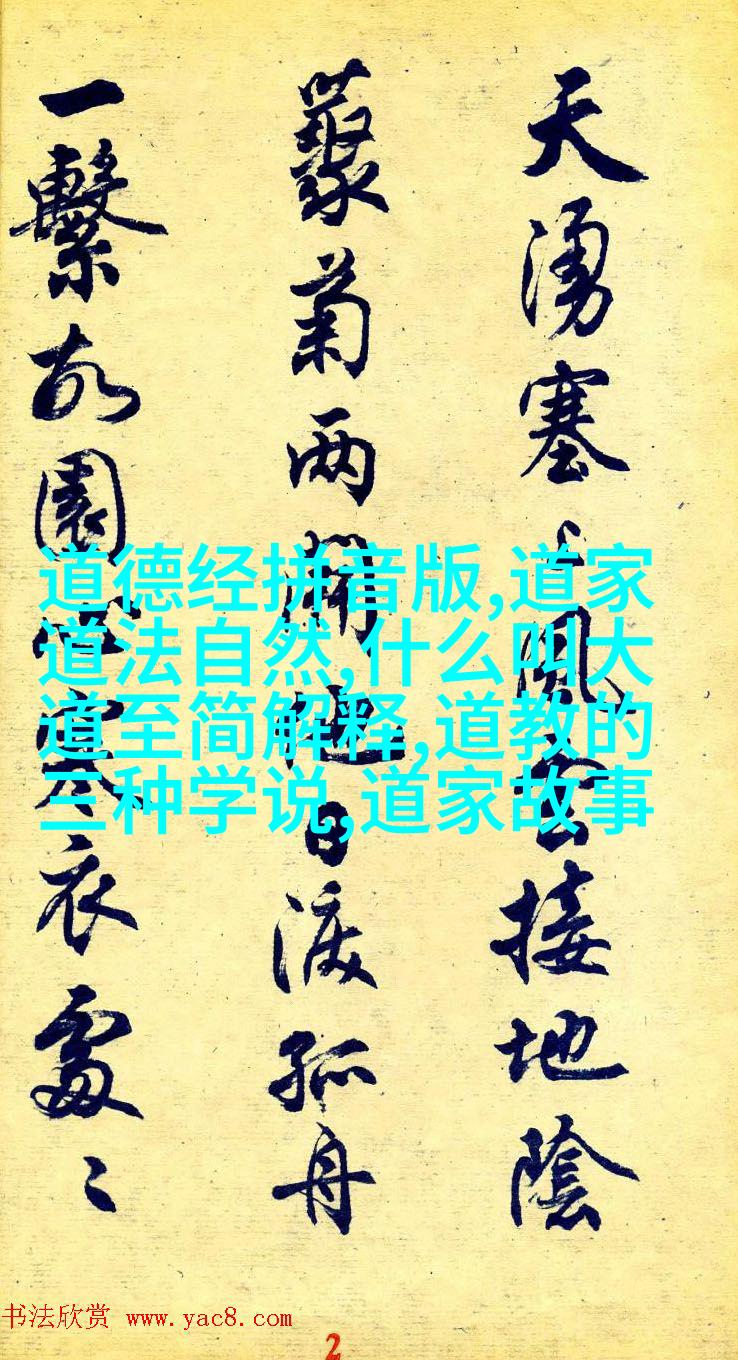 天湧塞上風雲接地陰
藂菊两開他日淚孤舟
一繫故園心寒衣處〻
道德经拼音版,道家
道法自然,什么叫大
道至简解释,道教的
三种学说,道家故事
书法欣赏 www.yac8.com
2